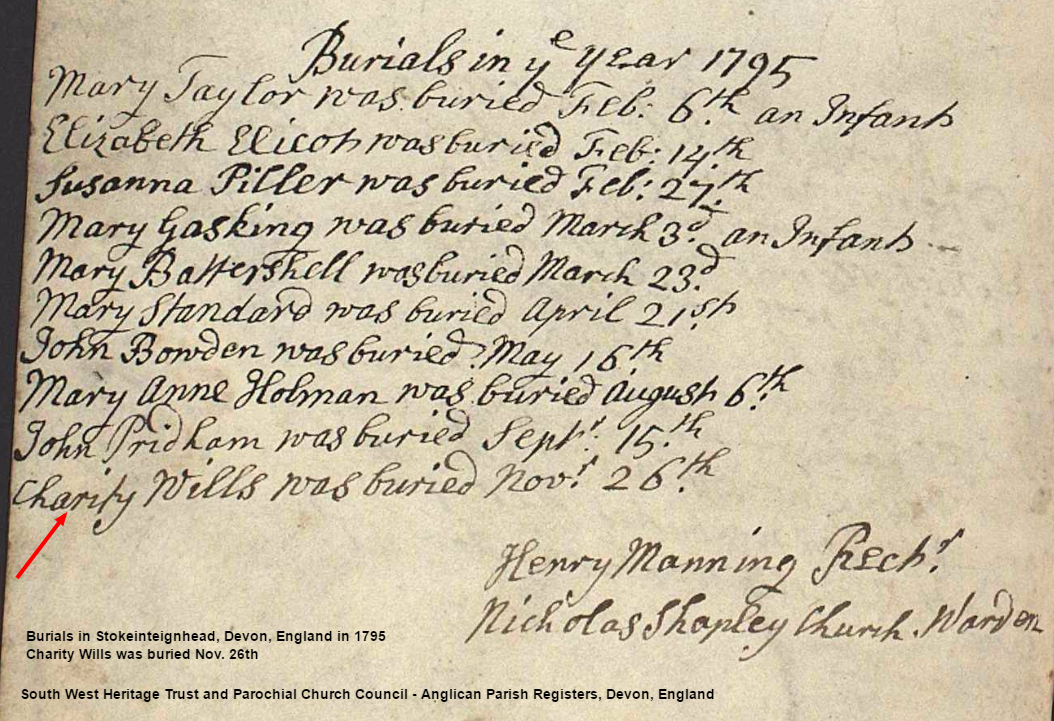 Burials in yᵉ year 1795
Mary Taylor was buried Feb: 6th an Infant
Elizabeth Elicot was buried Feb: 14th
Susanna Piller was buried Feb: 27th
Mary Gasking was buried March 3d an Infant
Mary Battershell was buried March 23d
Mary Standard was buried April 21st
John Bowden was buried May 16th
Mary Anne Holman was buried August 6th
John Pridham was buried Septr 15th
Charity Wills was buried Novr 26th
Henry Manning Rectr
Nicholas Shapley Church Warden
Burials in Stokeinteignhead, Devon, England in 1795
Charity Wills was buried Nov. 26th
South West Heritage Trust and Parochial Church Council - Anglican Parish Registers, Devon, England